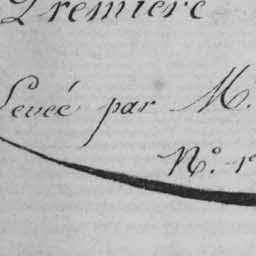 Premiere
Levée par M.
N.o 1